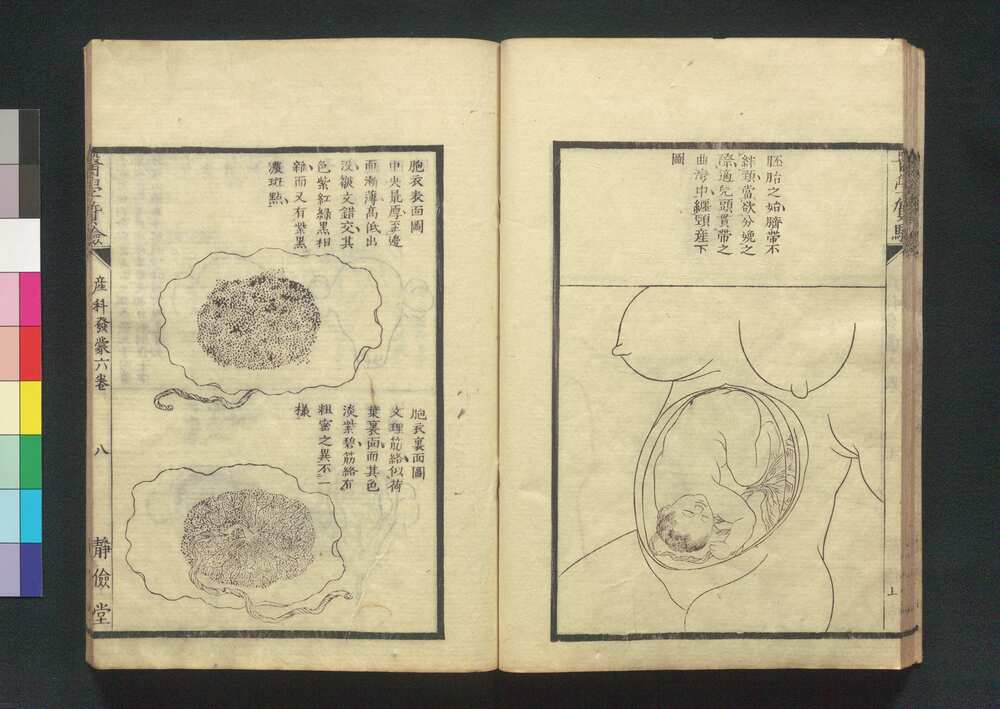 胚胎之始臍帶不
絆頸當欲分娩之
際適兒頭貫帶之
曲灣中纏頸産下
圖
上
胞衣表面圖
中央最厚至邊
而漸薄高低出
没皺文錯交其
色紫紅綠黑相
雜而又有紫黑
濃斑㸃
胞衣裏面圖
文理筋絡似荷
葉裏面而其色
淡紫碧筋絡有
粗密之異不一
樣
産科發蒙六卷
八
靜儉堂